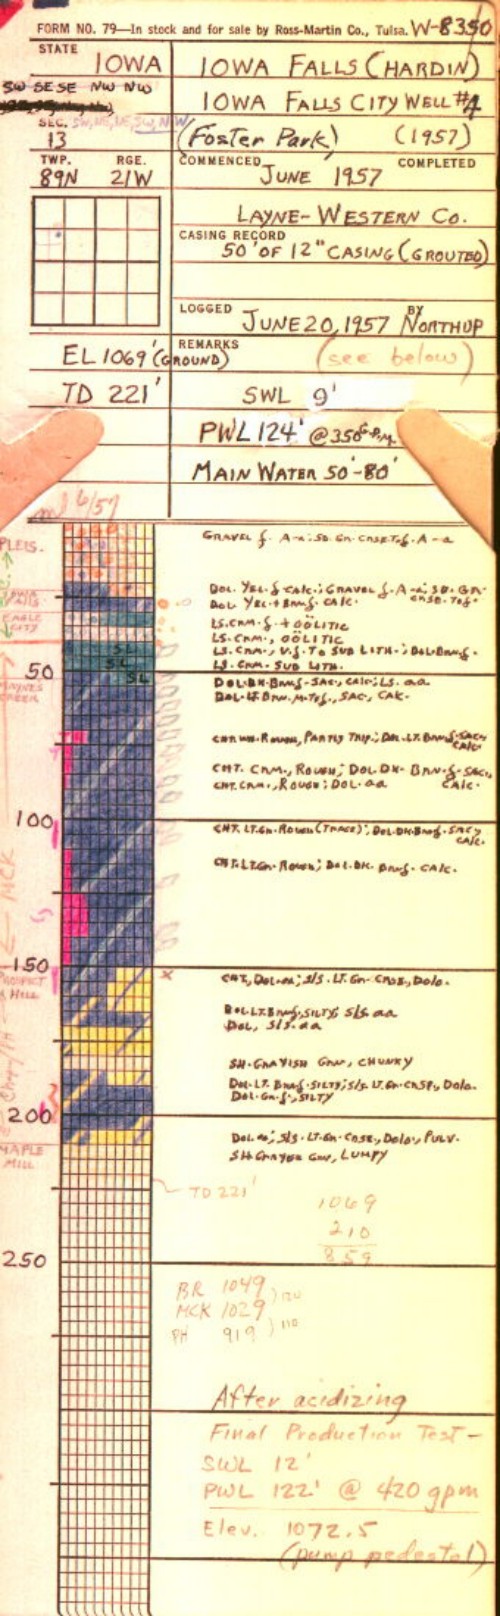 FORM NO. 79—In stock and for sale by Ross-Martin Co., Tulsa. W-8350
STATE
IOWA
IOWA FALLS (HARDIN)
SW SE SE NW NW
IOWA FALLS CITY WELL #4
SEC.
13
(Foster Park) (1957)
TWP. RGE.
89N 21W
COMMENCED COMPLETED
JUNE 1957
LAYNE-WESTERN CO.
CASING RECORD
50' OF 12" CASING (GROUTED)
LOGGED BY
JUNE 20, 1957 NORTHUP
REMARKS
EL 1069' (GROUND) (see below)
TD 221' SWL 9'
PWL 124' @ 350 G.P.M.
MAIN WATER 50'-80'
6/57
PLEIS.
GRAVEL f. A-a; SD. Gn. CNSE To f. A-a
IOWA FALLS
DOL. YEL. f. CALC.; GRAVEL f. A-a; SD. GR.
CNSE. To f.
DOL YEL + BRN f. CALC.
EAGLE CITY
LS. CRM- f. + OÖLITIC
LS. CRM., OÖLITIC
SL
LS. CRM., V.f. TO SUB LITH.; DOL. BRN f.
SL
LS. CRM- SUB LITH.
50
SL
DOL. DK. BRN f. SAC., CALC; LS. aa
HAYNES CREEK
DOL. LT. BRN. M. To f., SAC, CALC.
CHT. WH. ROUGH, PARTLY TRIP.; DOL. LT. BRN f. SAC,
CALC.
CHT. CRM., ROUGH; DOL. DK- BRN- f. SAC.,
CALC.
CHT. CRM., ROUGH; DOL. aa
100
CHT. LT. Gn. ROUGH (TRACE); DOL. DK. BRN f. SAC,
CALC.
MCK
CHT. LT. Gn. ROUGH; DOL. DK. BRN f. CALC.
150
PROSPECT HILL
CHT, DOL. aa; S/S. LT. Gn. CNSE, DOLO.
DOL. LT. BRN f. SILTY; S/S aa
DOL, S/S. aa
SH. GRAYISH GRN, CHUNKY
DOL. LT. BRN f. SILTY; S/S. LT. Gn. CNSE, DOLO.
DOL. Gn. f., SILTY
200
DOL aa; S/S. LT. Gn. CNSE, DOLO., PULV.
MAPLE MILL
SH GRAYISH GRN, LUMPY
TD 221'
1069
210
859
250
BR 1049
MCK 1029
PH 919
120
110
After acidizing
Final Production Test-
SWL 12'
PWL 122' @ 420 gpm
Elev. 1072.5
(pump pedestal)